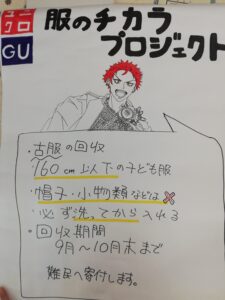 ユニ
クロ
GU
服のチカラ
プロジェクト
・古服の回収
160cm以下の子ども服
・帽子・小物類などは×
・必ず洗ってから入れる
・回収期間
9月〜10月末まで
難民へ寄付します。